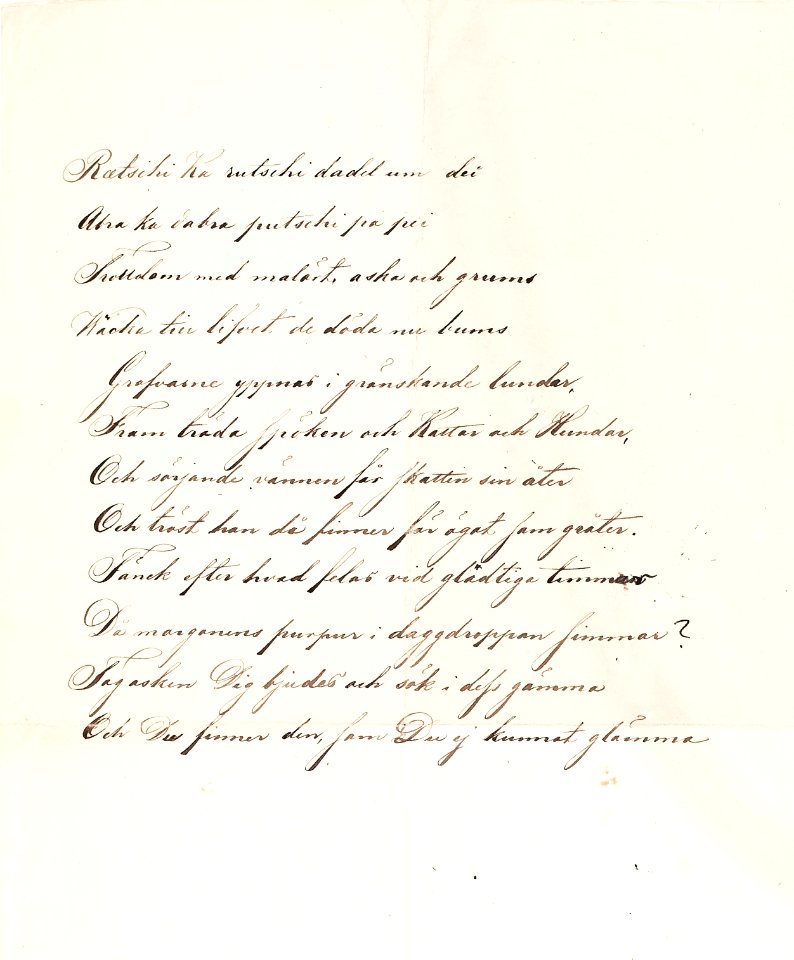 Rætschi Ka rutschi dadel um dei
Abra ka dabra putschi pa pei
Trolldom med malört, aska och grums
Wäcka till lifvet de döda nu bums
Grafvarne yppnas i grönskande lundar,
Fram träda spöken och Kattar och Hundar,
Och sörjande vännen får skatten sin åter
Och tröst han då finner för ögat som gråter.
Tänck efter hvad felas vid glädtiga timmar
Då morgonens purpur i daggdroppan simmar?
Tag asken Dig bjudes och sök i dess gömma
Och Du finner den, som Du ej kunnat glömma